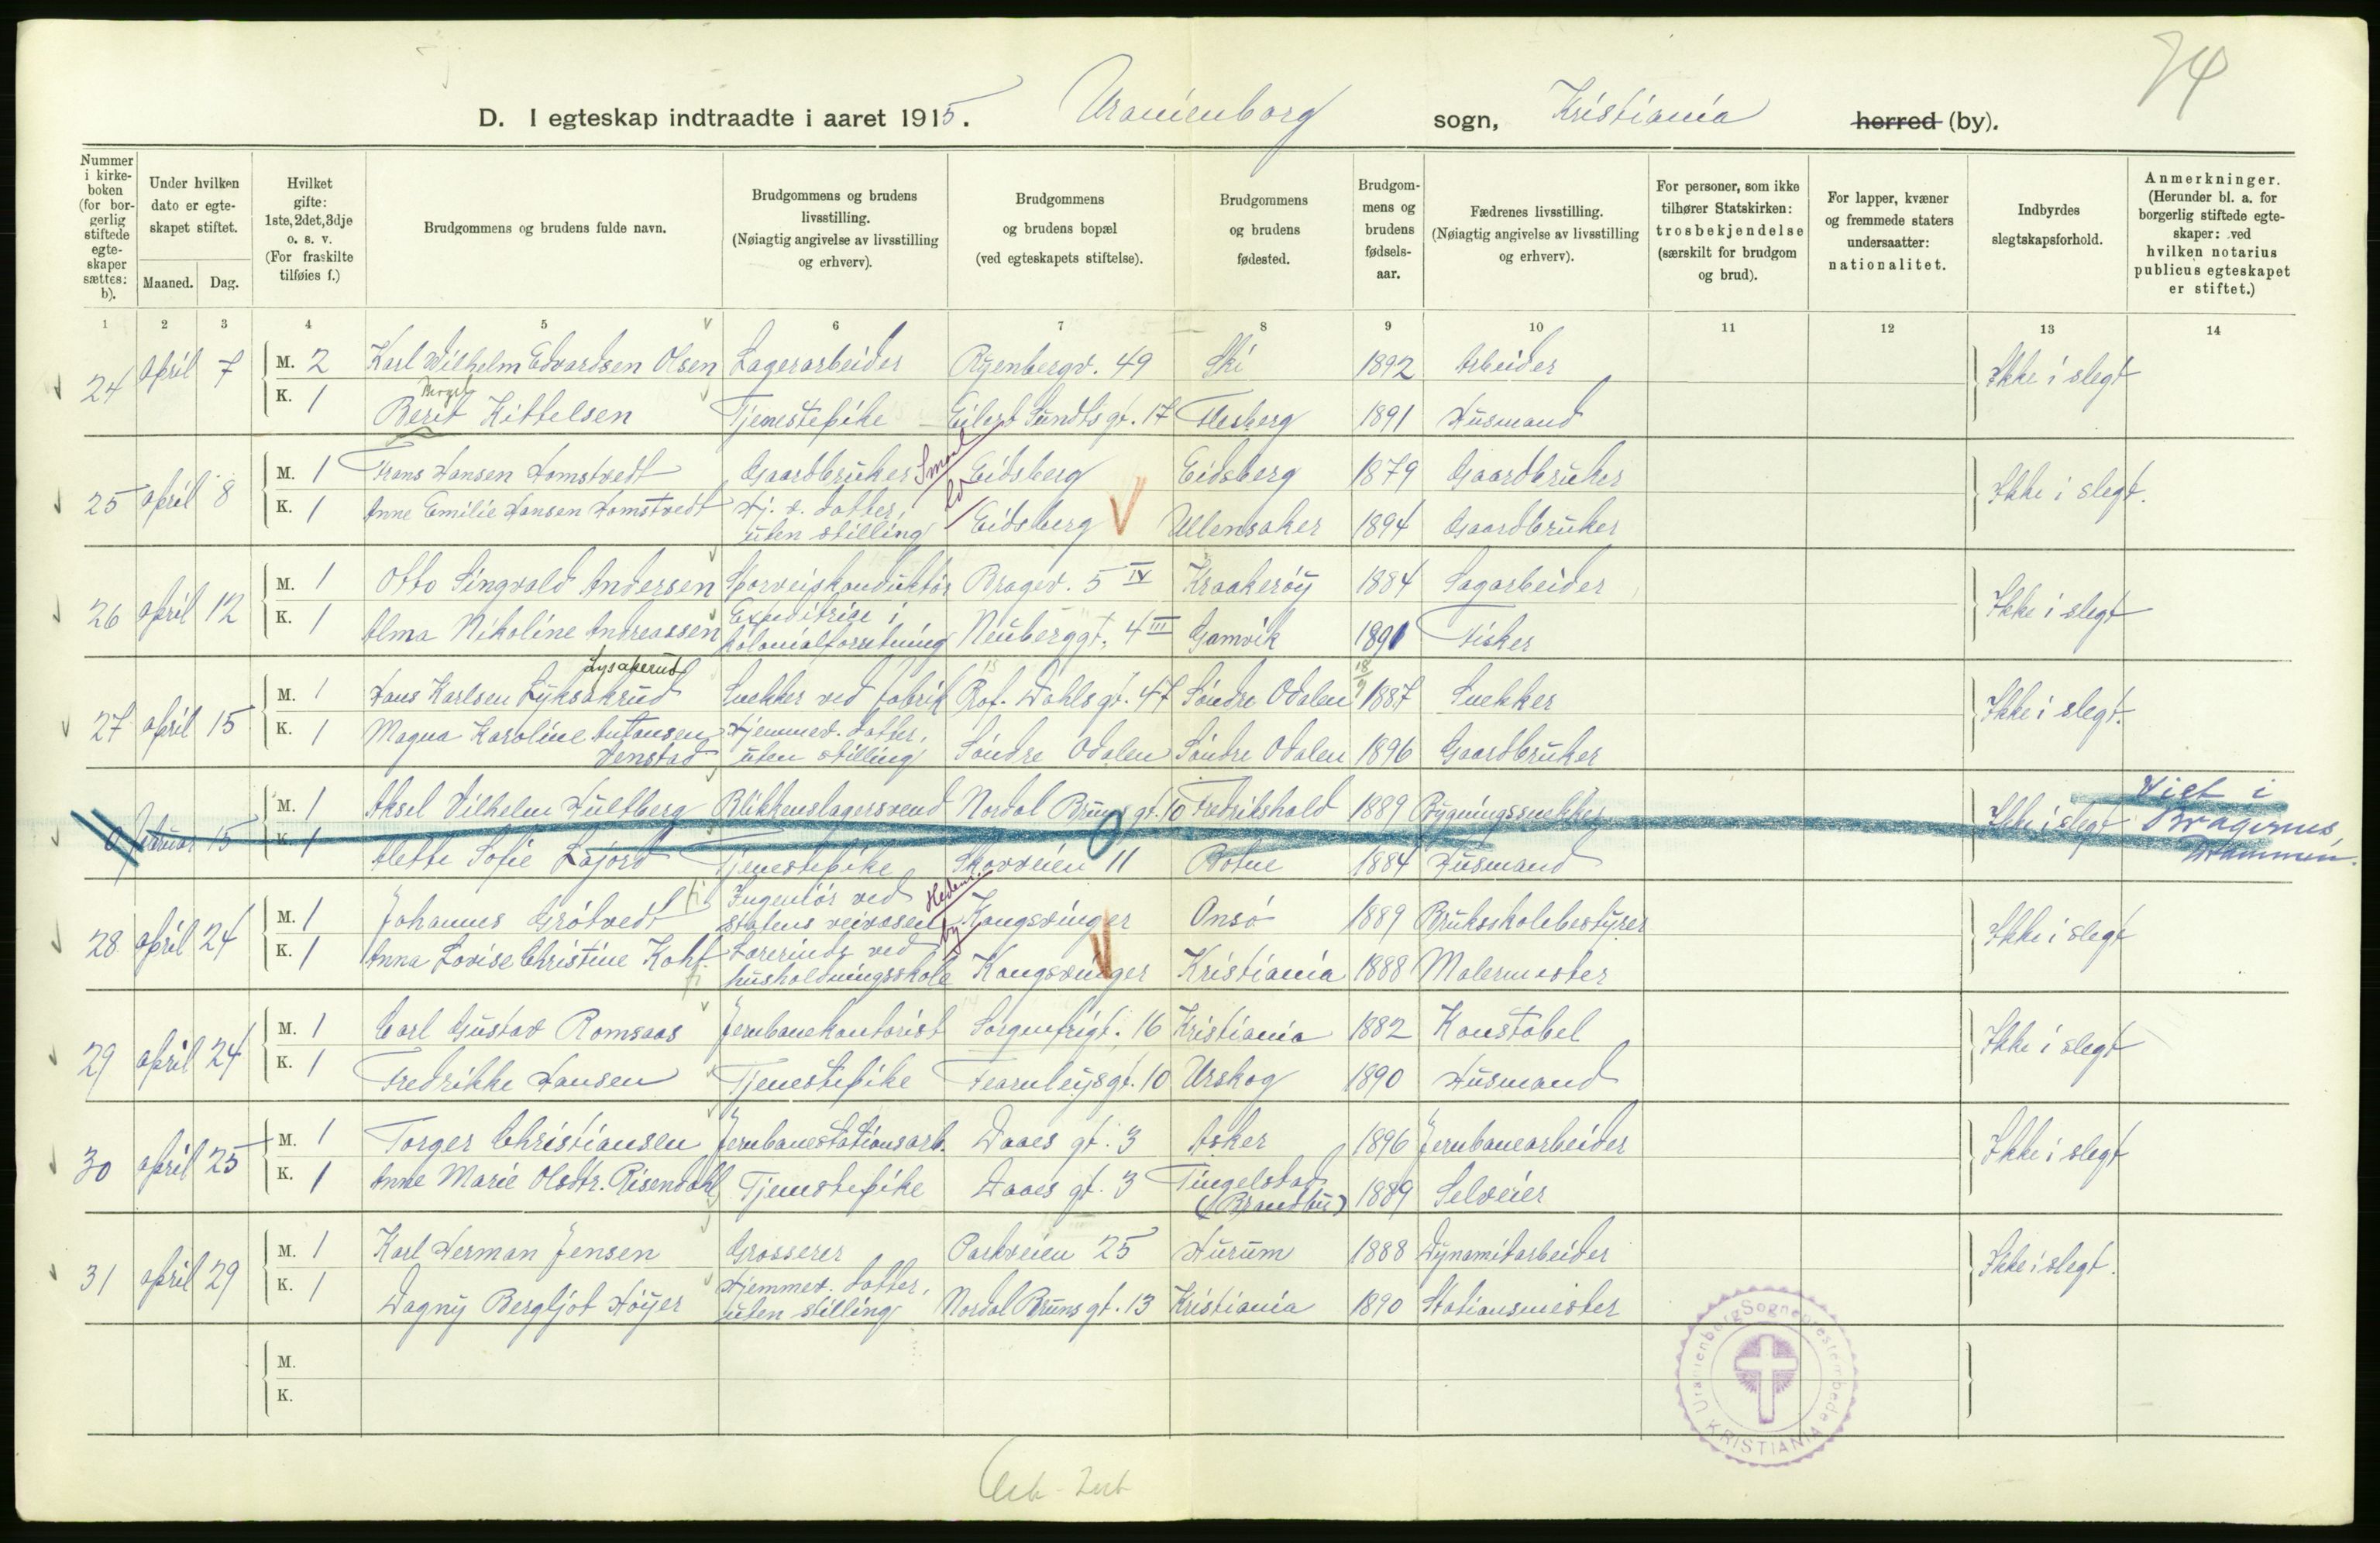 74
D. I egteskap indtraadte i aaret 1915. Uranienborg sogn, Kristiania herred (by).
Nummer i kirkeboken (for borgerlig stiftede egteskaper sættes: b).
Under hvilken dato er egteskapet stiftet.
Maaned. Dag.
Hvilket gifte: 1ste, 2det, 3dje o. s. v. (For fraskilte tilføies f.)
Brudgommens og brudens fulde navn.
Brudgommens og brudens livsstilling. (Nøiagtig angivelse av livsstilling og erhverv).
Brudgommens og brudens bopæl (ved egteskapets stiftelse).
Brudgommens og brudens fødested.
Brudgommens og brudens fødselsaar.
Fædrenes livsstilling. (Nøiagtig angivelse av livsstilling og erhverv).
For personer, som ikke tilhører Statskirken: trosbekjendelse (særskilt for brudgom og brud).
For lapper, kvæner og fremmede staters undersaatter: nationalitet.
Indbyrdes slegtskapsforhold.
Anmerkninger. (Herunder bl. a. for borgerlig stiftede egteskaper: ved hvilken notarius publicus egteskapet er stiftet.)
1 2 3 4 5 6 7 8 9 10 11 12 13 14
24 april 7 M. 2 Karl Wilhelm Edvardsen Olsen Lagerarbeider Ryenbergv. 49 Ski 1892 Arbeider Ikke i slegt
K. 1 Berit Kittelsen Tjenestepike Eilert Sundts gt. 17 Flesberg 1891 Husmand
25 april 8 M. 1 Frans Hansen Homstvedt Gaardbruker Eidsberg Eidsberg 1879 Gaardbruker Ikke i slegt.
K. 1 Anne Emilie Hansen Homstvedt Hj. v. datter, uten stilling Eidsberg Ullensaker 1894 Gaardbruker
26 april 12 M. 1 Otto Singvald Andersen Sporveiskonduktør Bragev. 5 IV Kraakerøy 1884 Sagarbeider Ikke i slegt
K. 1 Alma Nikoline Andreassen Expeditrice i kolonialforretning Neuberggt. 4 III Gamvik 1891 Fisker
Lysakerud
27 april 15 M. 1 Hans Karlsen Lyksakrud Snekker ved fabrik Prof. Dahls gt. 47 Søndre Odalen 18/9 1887 Snekker Ikke i slegt.
K. 1 Magna Karoline Antonsen Henstad Hjemmev. datter, uten stilling Søndre Odalen Søndre Odalen 1896 Gaardbruker
0 Februar 15 M. 1 Aksel Vilhelm Hultberg Blikkenslagersvend Nordal Bruns gt. 10 Fredrikshald 1889 Bygningssnekker Ikke i slegt Viet i Bragernes, Drammen.
K. 1 Alette Sofie Lajord Tjenestepike Skovveien 11 Botne 1884 Husmand
28 april 24 M. 1 Johannes Grøtvedt Ingeniør ved statens veivæsen Kongsvinger Onsø 1889 Bruksskolebestyrer Ikke i slegt
K. 1 Anna Lovise Christine Koht Lærerinde ved husholdningsskole Kongsvinger Kristiania 1888 Malermester
29 april 24 M. 1 Carl Gustav Romsaas Jernbanekontorist Sorgenfrigt. 16 Kristiania 1882 Konstabel Ikke i slegt
K. 1 Fredrikke Hansen Tjenestepike Fearnleysgt. 10 Urskog 1890 Husmand
30 april 25 M. 1 Torger Christiansen Jernbanestationsarb. Daaes gt. 3 Asker 1896 Jernbanearbeider Ikke i slegt
K. 1 Anne Marie Olsdtr. Risendahl Tjenestepike Daaes gt. 3 Tingelstad (Brandbu) 1889 Selveier
31 april 29 M. 1 Karl Herman Jensen Grosserer Parkveien 25 Hurum 1888 Dynamitarbeider Ikke i slegt.
K. 1 Dagny Bergljot Høyer Hjemmev. datter, uten stilling Nordal Bruns gt. 13 Kristiania 1890 Stationsmester
M.
K.
Uranienborg Sogneprestembede KRISTIANIA